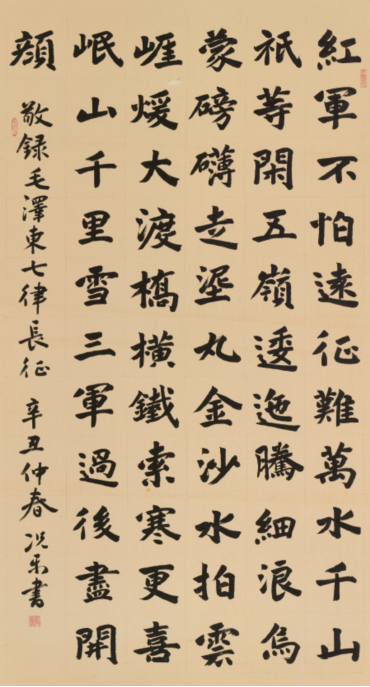 紅軍不怕遠征難萬水千山
祇等閑五嶺逶迤騰細浪烏
蒙磅礴走埿丸金沙水拍雲
崕煖大渡橋橫鐵索寒更喜
岷山千里雪三軍過後盡開
顔
敬録毛澤東七律長征 辛丑仲春 書